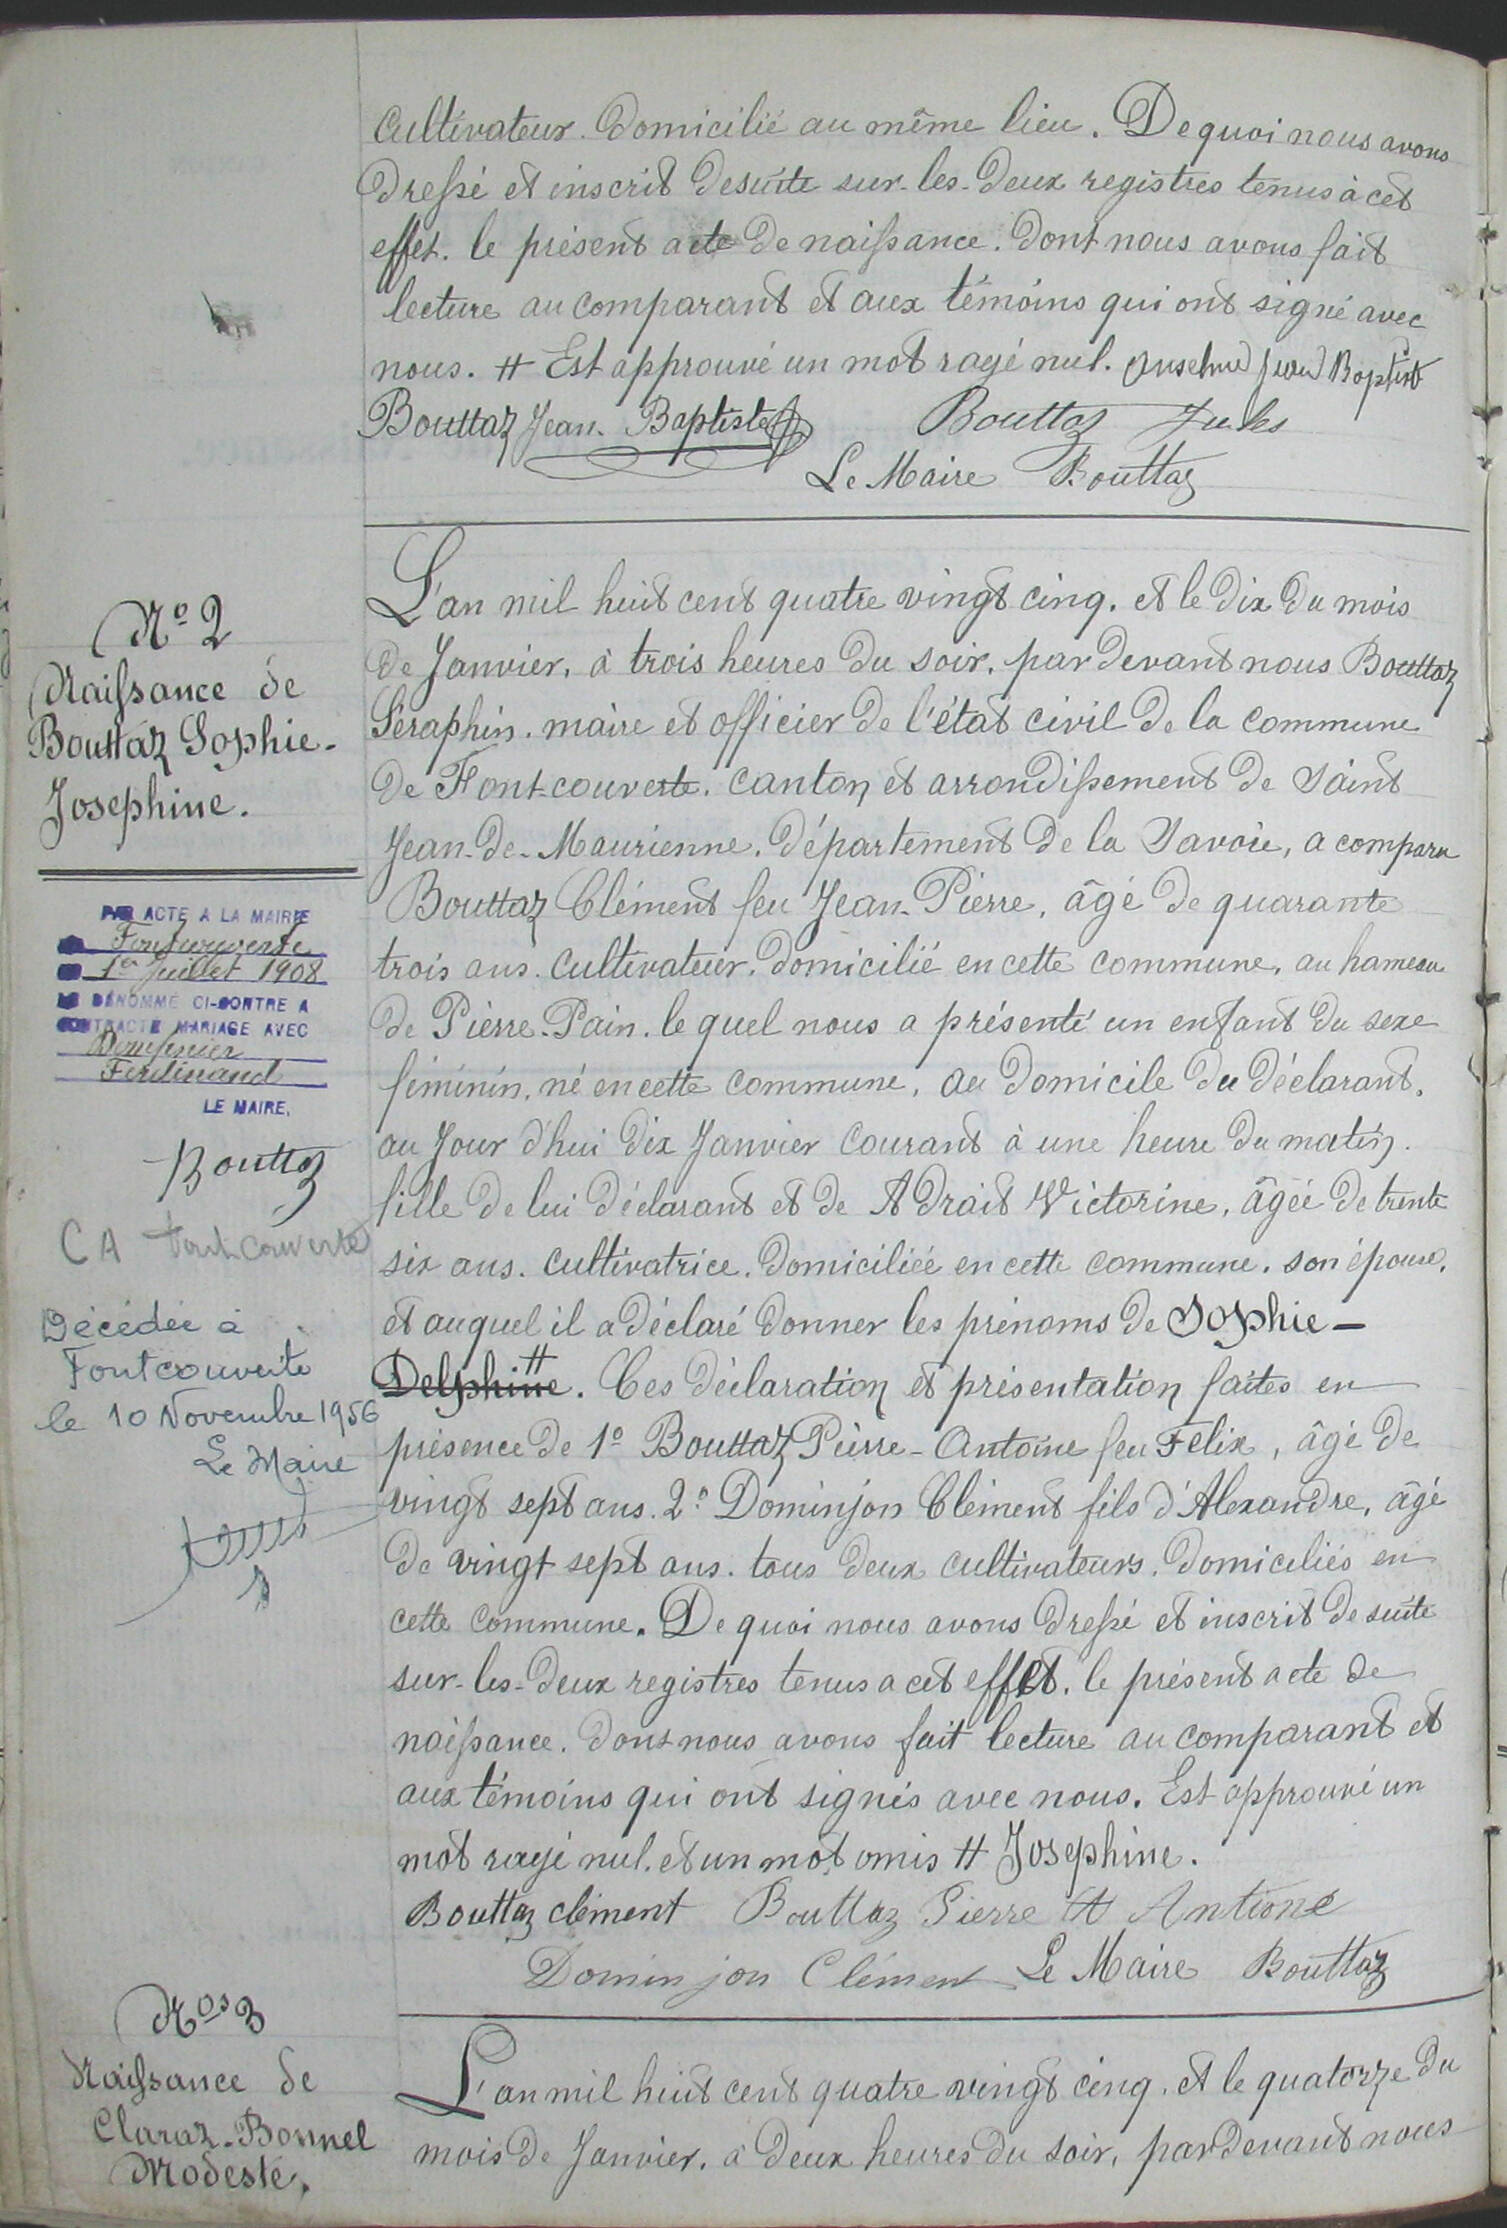 Cultivateur. domicilié au même lieu. De quoi nous avons
dressé et inscrit desuite sur-les-deux registres tenus à cet
effet. le présent acte de naissance. dont nous avons fait
lecture au comparant et aux témoins qui ont signé avec
nous. # Est approuvé un mot rayé nul. Anselme Jean Baptist
Bouttaz Jean-Baptiste Bouttaz Jules
Le Maire Bouttaz
N° 2
Naissance de
Bouttaz Sophie-
Josephine.
PAR ACTE A LA MAIRIE
Fontcouverte
1er Juillet 1908
LE DÉNOMMÉ CI-CONTRE A
CONTRACTÉ MARIAGE AVEC
Dompnier
Ferdinand
LE MAIRE,
Bouttaz
CA Fontcouverte
Décédée à
Fontcouverte
le 10 Novembre 1956
Le Maire
L'an mil huit cent quatre vingt cinq. et le dix du mois
de Janvier, à trois heures du soir. par devant nous Bouttaz
Séraphin. maire et officier de l'état civil de la commune
de Font-couverte. canton et arrondissement de Saint
Jean-de-Maurienne. département de la Savoie, a comparu
Bouttaz Clément feu Jean-Pierre, âgé de quarante
trois ans. cultivateur. domicilié en cette commune, au hameau
de Pierre-Pain. le quel nous a présenté un enfant du sexe
féminin, né en cette commune, au domicile du déclarant,
au Jour d'hui dix Janvier courant à une heure du matin.
fille de lui déclarant et de Adrait Victorine, âgée de trente
six ans. cultivatrice. domiciliée en cette commune. son épouse,
et auquel il a déclaré donner les prénoms de Sophie-
Delphine #. Ces déclaration et présentation faites en
présence de 1° Bouttaz Pierre-Antoine feu Felix, âgé de
vingt sept ans. 2° Dominjon Clément fils d'Alexandre, âgé
de vingt sept ans. tous deux cultivateurs. domiciliés en
cette commune. De quoi nous avons dressé et inscrit de suite
sur-les-deux registres tenus a cet effet. le présent acte de
naissance. dont nous avons fait lecture au comparant et
aux témoins qui ont signés avec nous. Est approuvé un
mot rayé nul. et un mot omis # Josephine.
Bouttaz clément Bouttaz Pierre Antione
Dominjon Clément Le Maire Bouttaz
Nos 3
Naissance de
Claraz-Bonnel
Modeste.
L'an mil huit cent quatre vingt cinq. et le quatorze du
mois de Janvier. à deux heures du soir, pardevant nous